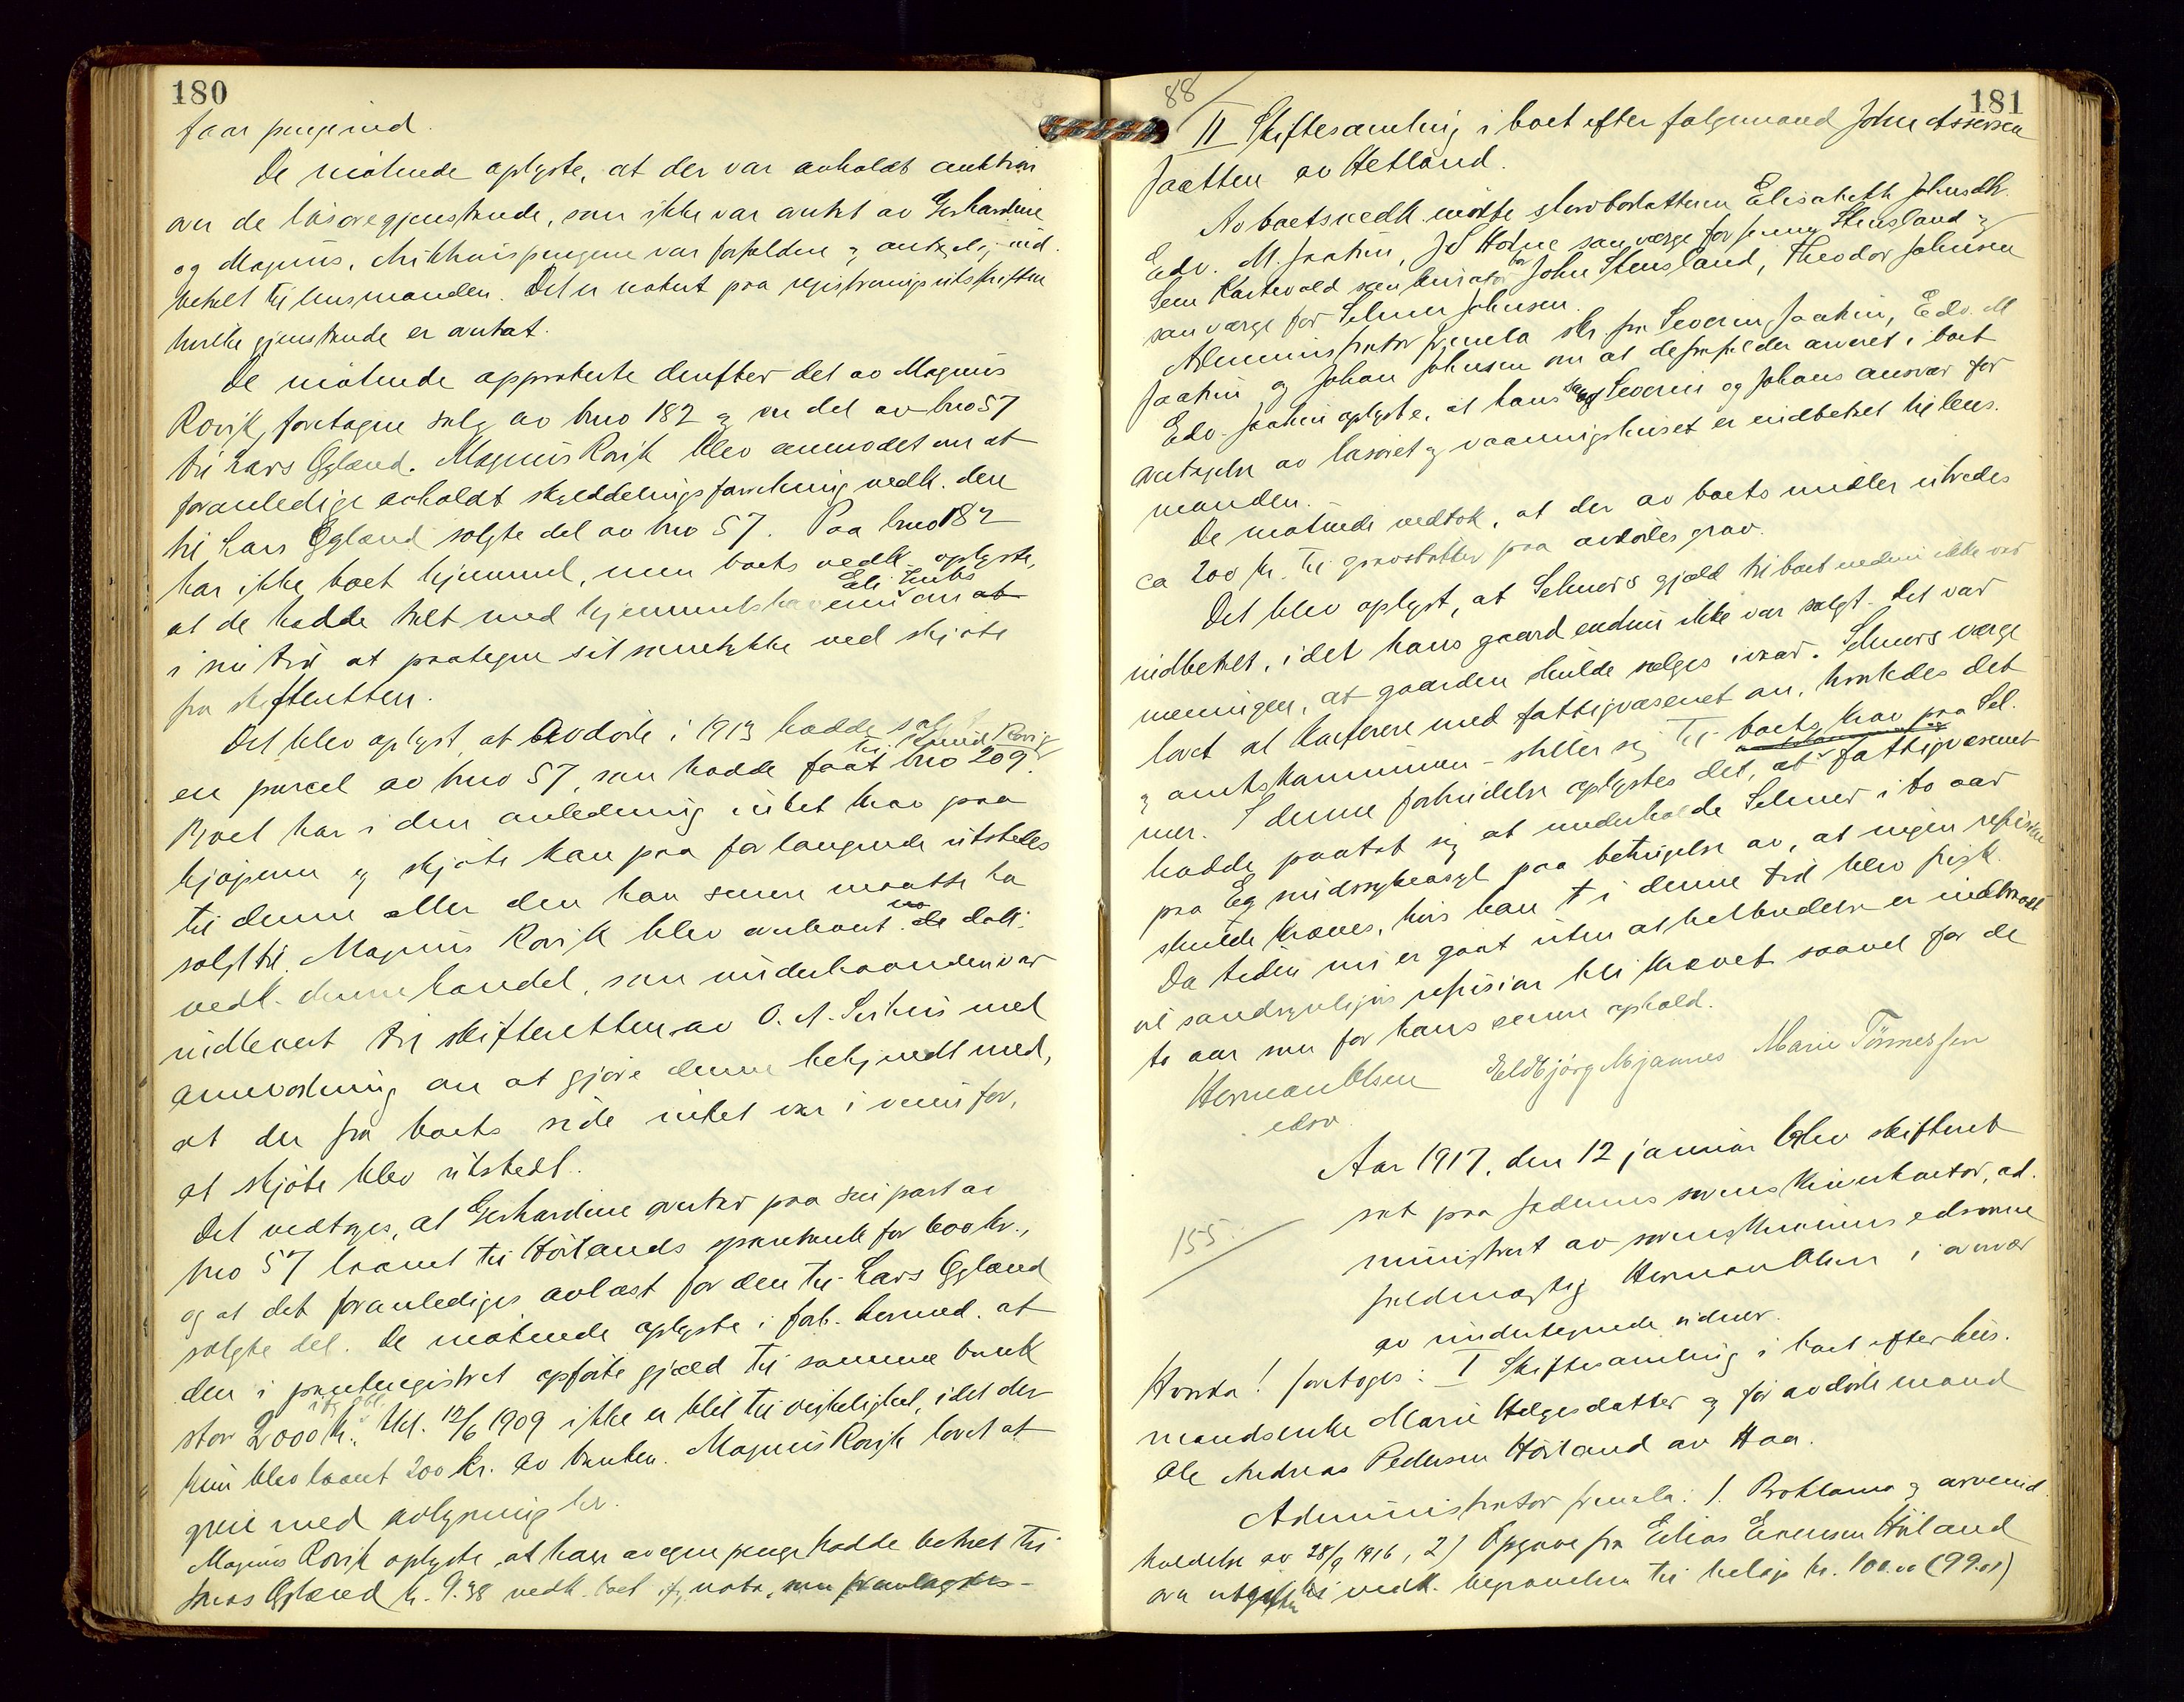 180
faar penge ind.
De mötende oplyste, at der var avholdt auktion
over de lösöregjenstande, som ikke var avtat av Gerhardine
og Magnus. Auktionspengene var forfaldne og ind-
betalt til lensmanden. Det er notert paa registreringsutskriften
hvilke gjenstande er avtat.
De mötende approberte derefter det av Magnus
Rovik foretagne salg av bno 182 og en del av bno 57
til Lars Ogland. Magnus Rovik blev anmodet om at
foranledige avholdt skylddelingsforretning vedk. den
til Lars Ogland solgte del av bno 57. Paa bno 182
har ikke boet hjemmel, men boets vedk. oplyste,
at de hadde talt med hjemmelshaveren om at
i sin tid at paategne sit samtykke ved skjöte
fra skifteretten.
Det blev oplyst at Avdöde i 1913 hadde solgt
til Rovik
en parcel av bno 57, som hadde faat bno 209.
Boet har i den anledning intet krav paa
kjöperen og skjöte kan paa forlangende utstedes
til denne eller den han senere maatte ha
solgt til. Magnus Rovik blev anbeont de dok.
vedk. denne handel, som underhaanden var
indlevert til skifteretten av O. A. Serkins med
anmodning om at gjöre denne bekjendt med,
at der fra boets side intet var i veien for,
at skjöte blev utstedt.
Det vedtages, at Gerhardine overtar paa sin part av
bno 57 laanet til Hölands sparebank for 600 kr.,
og at det foranlediges avlöst for den til Lars Ogland
solgte del. De mötende oplyste i forb. hermed at
den i panteregistret opförte gjæld til samme bank
stor 2000 kr. tkl. 12/6 1909 ikke er blit til virkelighet, idet der
kun blev laant 200 kr. av banken. Magnus Rovik lovet at
greie med avlysning her.
Magnus Rovik oplyste, at han av egne penge hadde betalt til
Jonas Ogland kr. 9.38 vedk. boet if. nota, som fremlagdes-
88
181
II Skiftesamling i boet efter folgemand John Assersen
Jaatten av Hetland.
Av boets vedk. mötte sterbodatteren Elisabeth Johnsdtr.
Edv. M. Jaatten, J S Hotne som værge for Jenny Stensland og
som kurator for John Stensland, Theodor Johnsen
som værge for Selmer Johnsen.
Administrator fremla skr. fra Severin Jaatten, Edv. M
Jaatten og Johan Johnsen om at de frafalder arveret i boet
Edv. Jaatten oplyste, at hans samt Severin og Johans ansvar for
overtagelse av lösöret og vaaningshuset er indbetalt til lens-
manden.
De mötende vedtok, at der av boets midler utredes
ca 200 kr. til gravstötte paa avdödes grav.
Det blev oplyst, at Selmers gjæld til boet endnu ikke var
indbetalt, idet hans gaard endnu ikke var solgt. Det var
meningen, at gaarden skulde sælges ivaar. Selmers værge
lovet at konferere med fattigvæsenet om, hvorledes det
og amtskommunen stiller sig til boets krav paa Sel-
mer. I denne forbindelse oplystes det, at fattigvæsenet
hadde paatat sig at underholde Selmer i to aar
paa Eg sindssykeasyl paa betingelse av, at ingen refusion
skulde kræves, hvis han i denne tid blev frisk.
Da tiden nu er gaat uten at helbredelse er indtraadt
vil sandsynligvis refusion bli krævet saavel for de
to aar som for hans senere ophold.
Herman Olsen Eldbjörg Mjaanes Marie Tönnessen
edsv.
155.
Aar 1917, den 12 januar blev skifteret
sat paa Jæderens sorenskriverkontor, ad-
ministrert av sorenskriverens edsvorne
fuldmægtig Herman Olsen i overvær
av undertegnede vidner.
Hvorda! foretoges: I Skiftesamling i boet efter hus-
mandsenke Marie Helgesdatter og för avdöde mand
Ole Andreas Pedersen Höiland av Haa.
Administrator fremla: 1. Proklama og arveind-
kaldelse av 28/9 1916, 2) Opgave fra Elias Enevsen Höiland
over utgifter vedk. begravelsen til beløp kr. 100.00 (99.01)